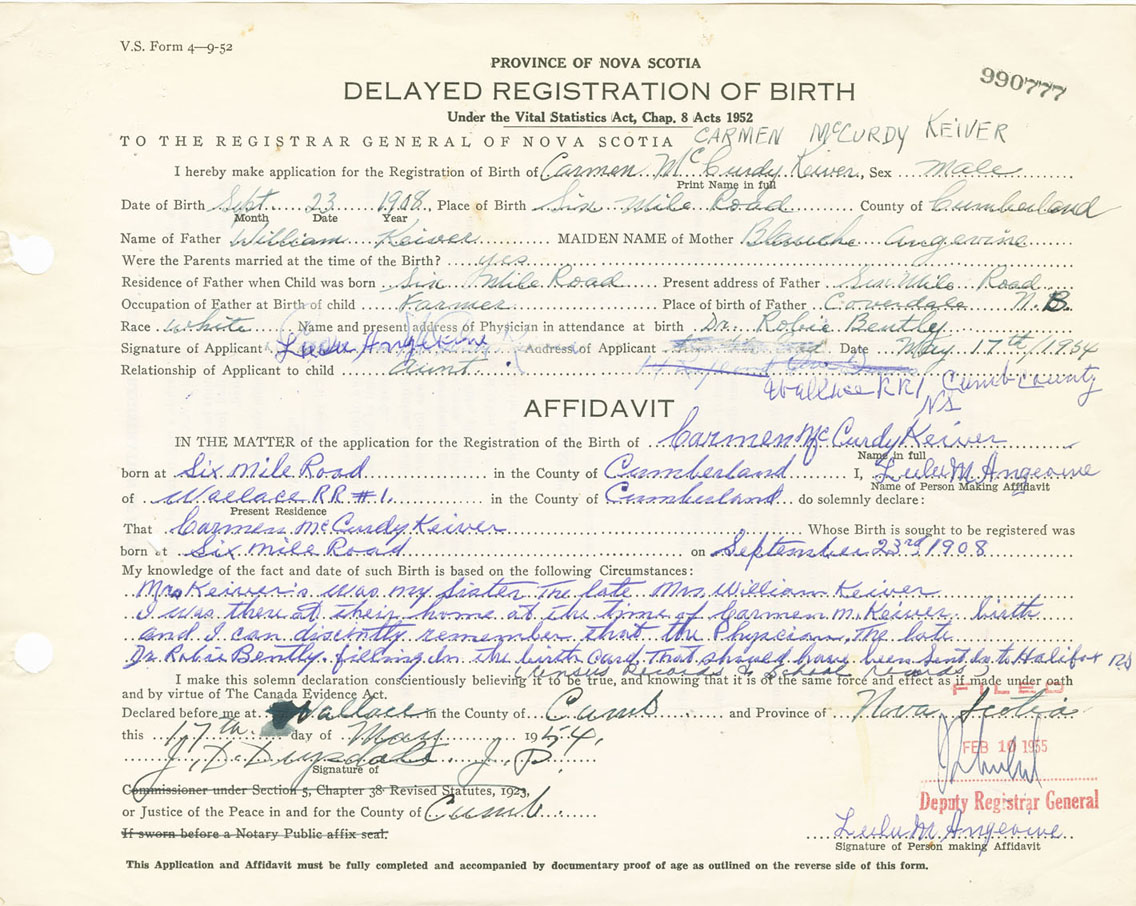 V.S. Form 4—9-52
PROVINCE OF NOVA SCOTIA
990777
DELAYED REGISTRATION OF BIRTH
Under the Vital Statistics Act, Chap. 8 Acts 1952
CARMEN McCURDY KEIVER
TO THE REGISTRAR GENERAL OF NOVA SCOTIA
I hereby make application for the Registration of Birth of Carmen McCurdy Keiver, Sex male
Print Name in full
Date of Birth Sept. 23 1908, Place of Birth Six Mile Road County of Cumberland
Month Date Year
Name of Father William Keiver MAIDEN NAME of Mother Blanche Angevine
Were the Parents married at the time of the Birth? yes
Residence of Father when Child was born Six Mile Road Present address of Father Six Mile Road
Occupation of Father at Birth of child Farmer Place of birth of Father Coverdale N.B.
Race white Name and present address of Physician in attendance at birth Dr. Robie Bently
Signature of Applicant Lulu Angevine Address of Applicant Date May 17th/1954
Relationship of Applicant to child aunt
Wallace RR1 Cumb county
NS
AFFIDAVIT
IN THE MATTER of the application for the Registration of the Birth of Carmen McCurdy Keiver
Name in full
born at Six Mile Road in the County of Cumberland I, Lulu M Angevine
Name of Person Making Affidavit
of Wallace RR #1 in the County of Cumberland do solemnly declare:
Present Residence
That Carmen McCurdy Keiver Whose Birth is sought to be registered was
born at Six Mile Road on September 23rd 1908
My knowledge of the fact and date of such Birth is based on the following Circumstances:
Mrs Keiver's was my Sister The late Mrs William Keiver
I was there at their home at the time of Carmen M. Keiver birth
and I can disently remember that the Physician, the late
Dr. Robie Bently filling In the birth card That should have been Sent In to Halifax NS
Census Records & School Records
I make this solemn declaration conscientiously believing it to be true, and knowing that it is of the same force and effect as if made under oath
and by virtue of The Canada Evidence Act.
FILED
Declared before me at Wallace in the County of Cumb and Province of Nova Scotia
this 17th day of May 1954.
FEB 10 1955
J. D. Drysdale J. P.
Signature of
Commissioner under Section 5, Chapter 38 Revised Statutes, 1923,
Deputy Registrar General
or Justice of the Peace in and for the County of Cumb
Lulu M Angevine
If sworn before a Notary Public affix seal.
Signature of Person making Affidavit
This Application and Affidavit must be fully completed and accompanied by documentary proof of age as outlined on the reverse side of this form.